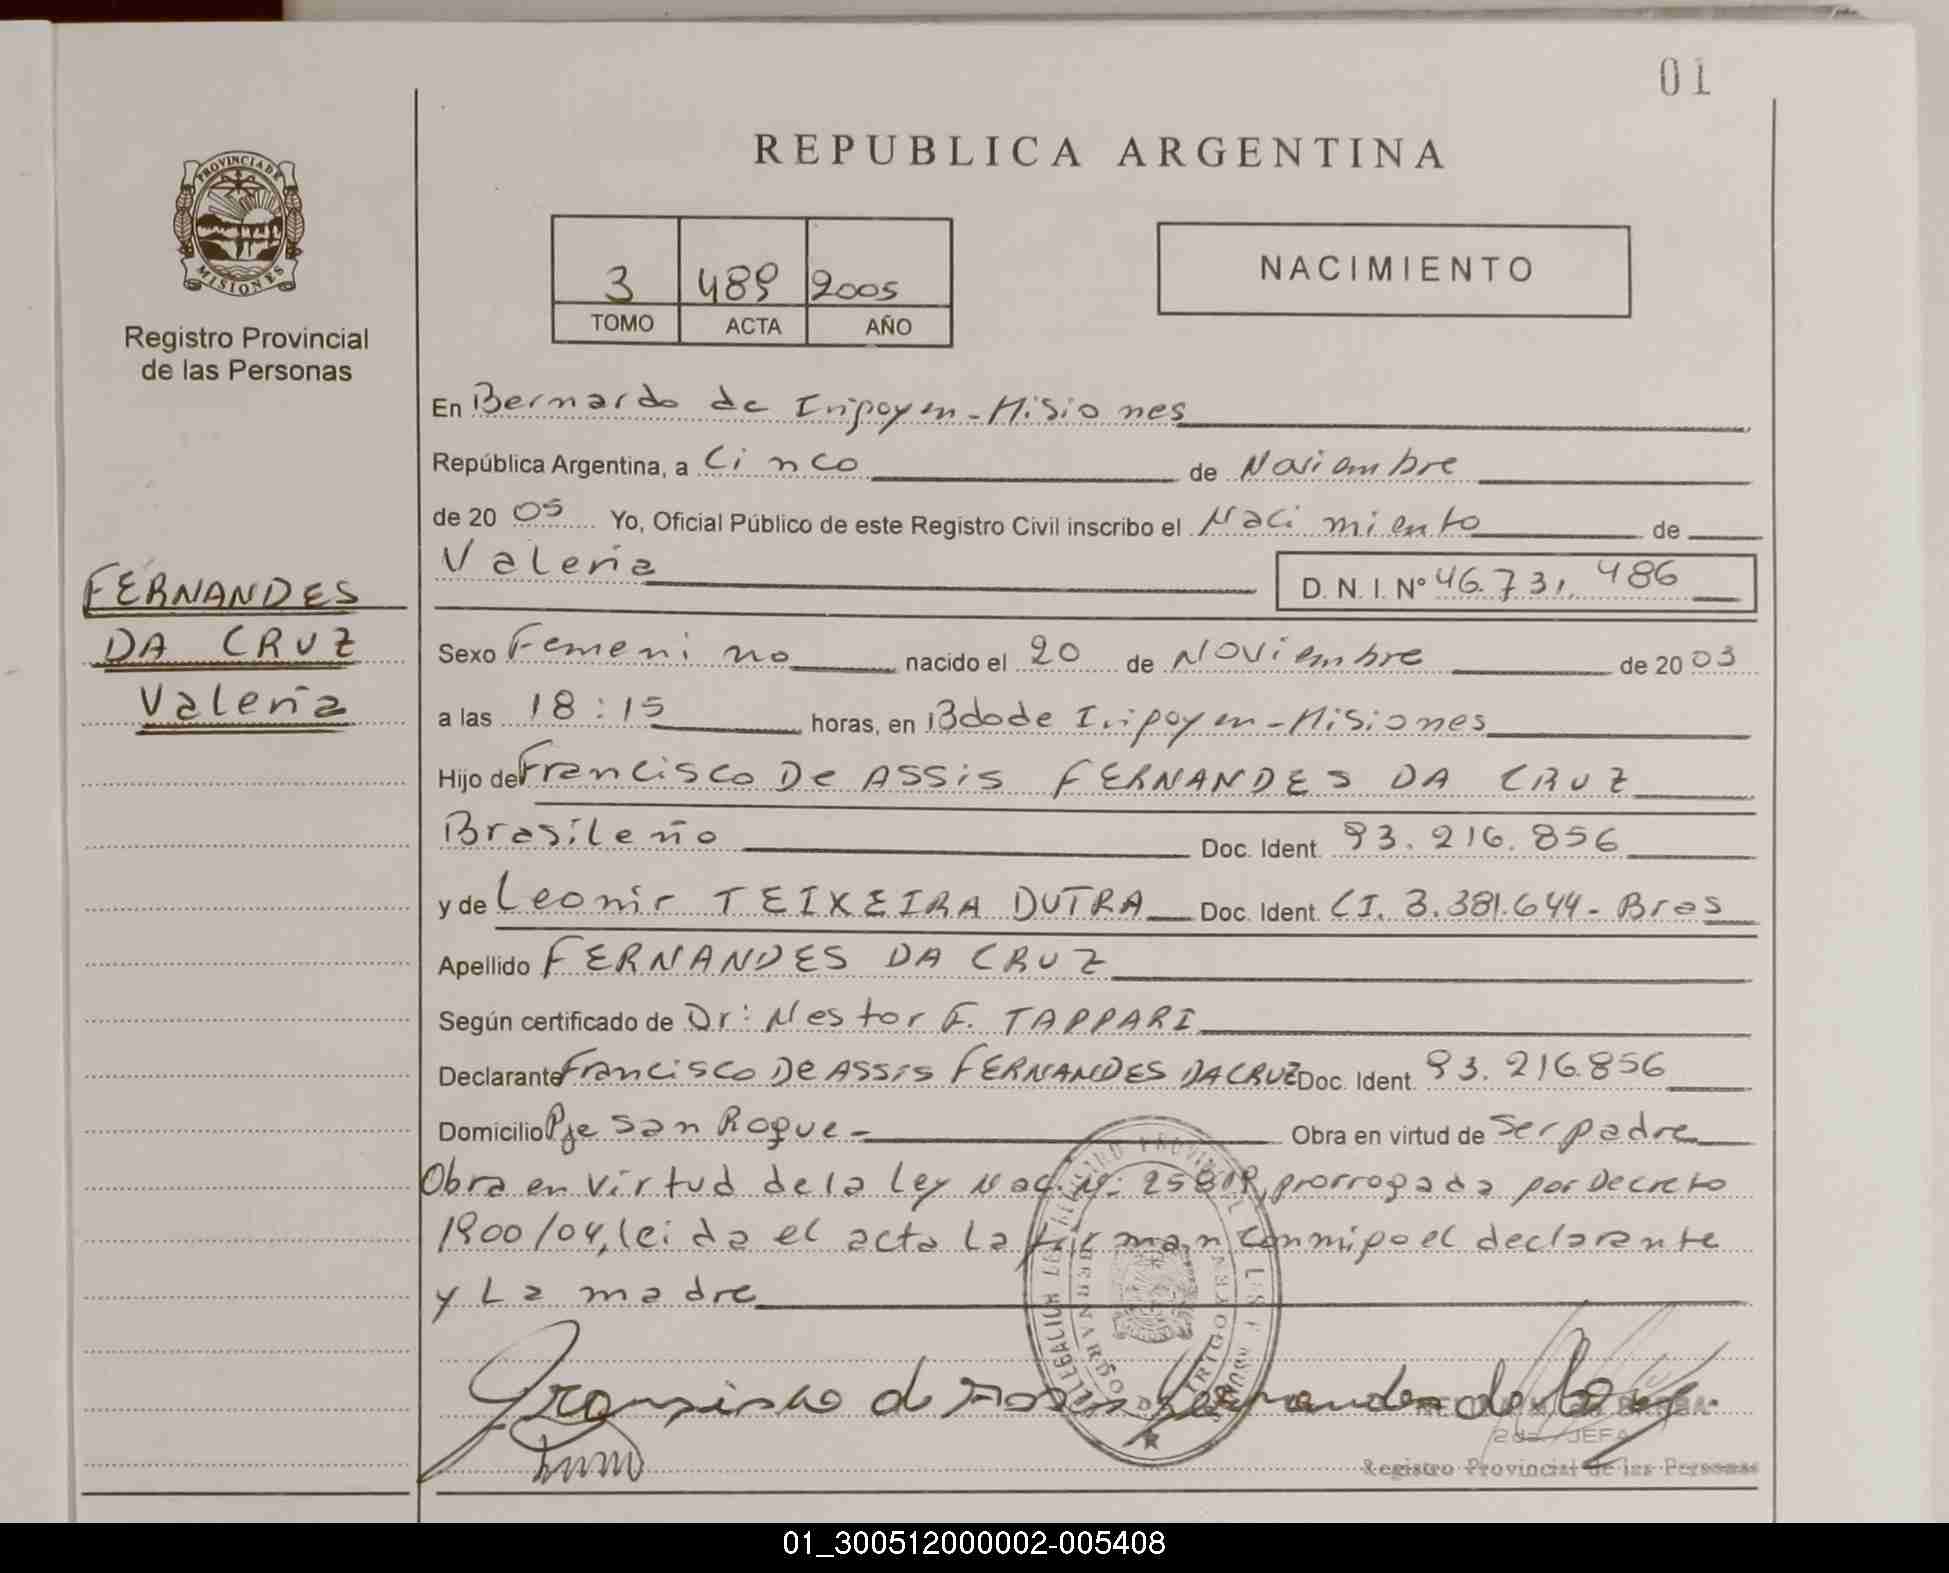 01
REPUBLICA ARGENTINA
PROVINCIA DE
MISIONES
Registro Provincial
de las Personas
3 489 2005
TOMO ACTA AÑO
NACIMIENTO
En Bernardo de Irigoyen - Misiones
República Argentina, a Cinco de Noviembre
de 20 05 Yo, Oficial Público de este Registro Civil inscribo el Nacimiento de
Valeria D. N. I. Nº 46.731.486
FERNANDES
DA CRUZ
Valeria
Sexo Femenino nacido el 20 de Noviembre de 20 03
a las 18:15 horas, en Bdo de Irigoyen - Misiones
Hijo de Francisco De ASSis FERNANDES DA CRUZ
Brasileño Doc. Ident. 93.216.856
y de Leonir TEIXEIRA DUTRA Doc. Ident. CI. 3.381.644 - Bras
Apellido FERNANDES DA CRUZ
Según certificado de Dr: Nestor F. TAPPARI
Declarante Francisco De ASSis FERNANDES DA CRUZ Doc. Ident. 93.216.856
Domicilio Pje San Roque - Obra en virtud de Ser padre
Obra en virtud de la Ley Nac. Nº: 25819, prorrogada por Decreto
1900/04, leida el acta La firman conmigo el declarante
y La madre
Francisco de Assis Fernandes da Cruz
2da. JEFA
Registro Provincial de las Personas
01_300512000002-005408